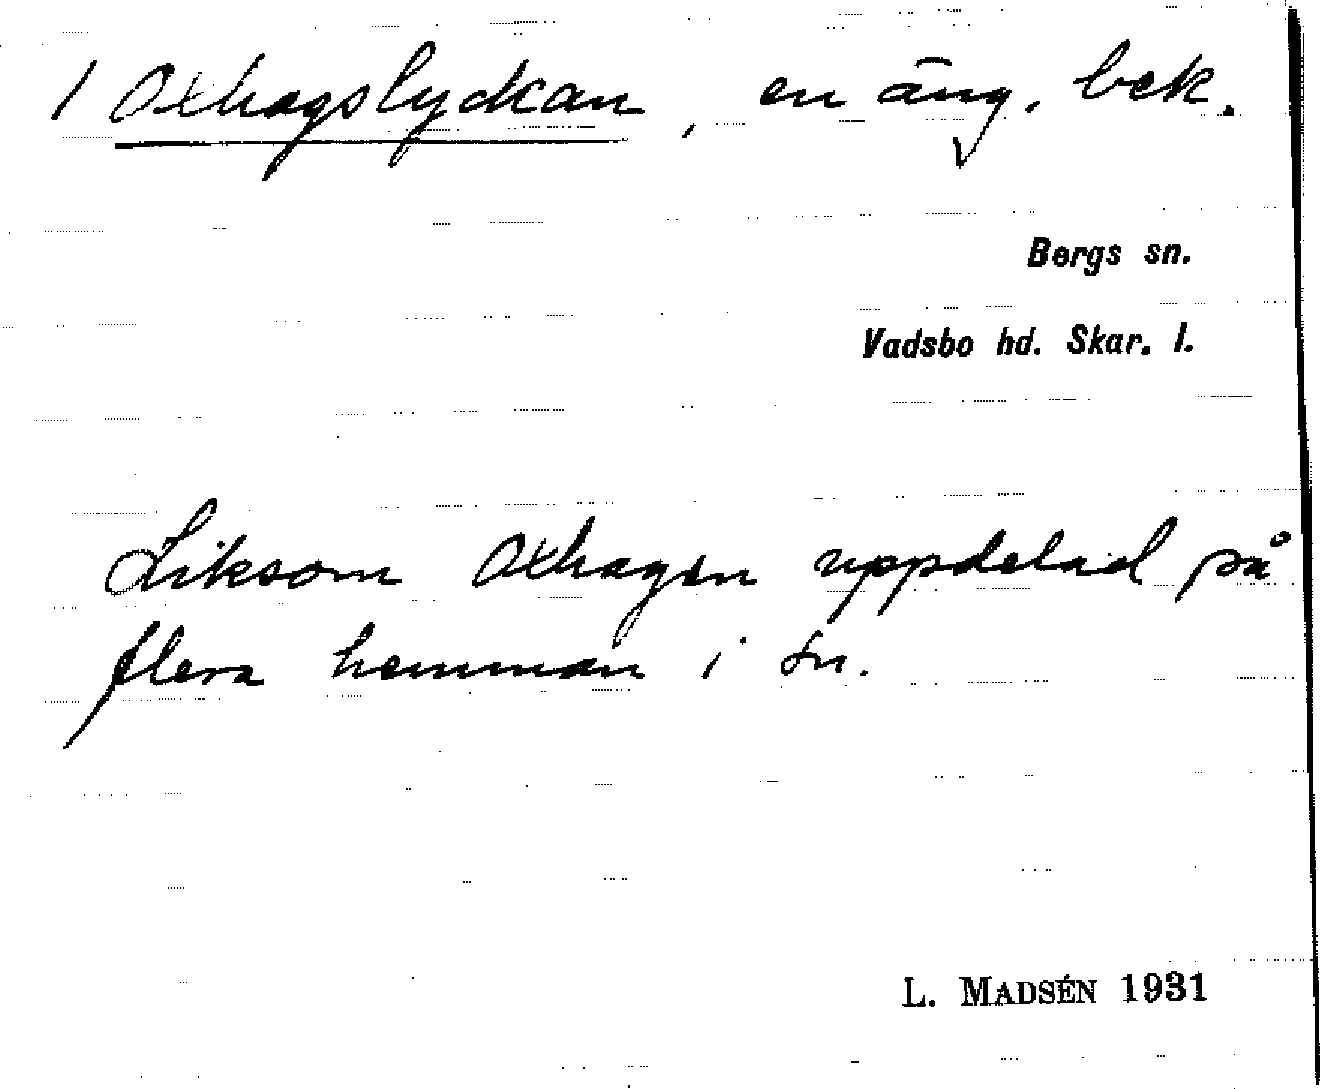 / Oxhagslyckan, en äng, bek.
V
Bergs sn.
Vadsbo hd. Skar. l.
Liksom Oxhagen uppdelad på
flera hemman i sn.
L. MADSÉN 1931